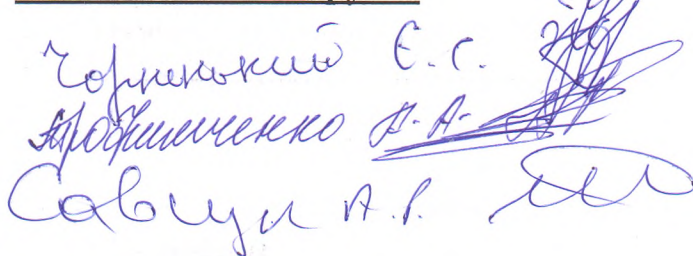 Чорненький Є. С.
Трофимченко А. А.
Савчук А. Р.